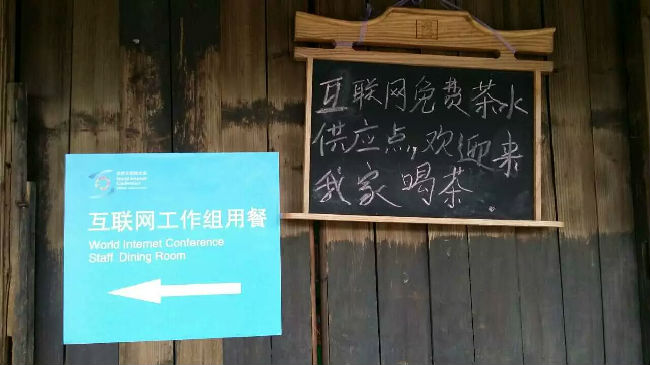 World Internet
Conference
互联网工作组用餐
World Internet Conference
Staff Dining Room
互联网免费茶水
供应点,欢迎来
我家喝茶.